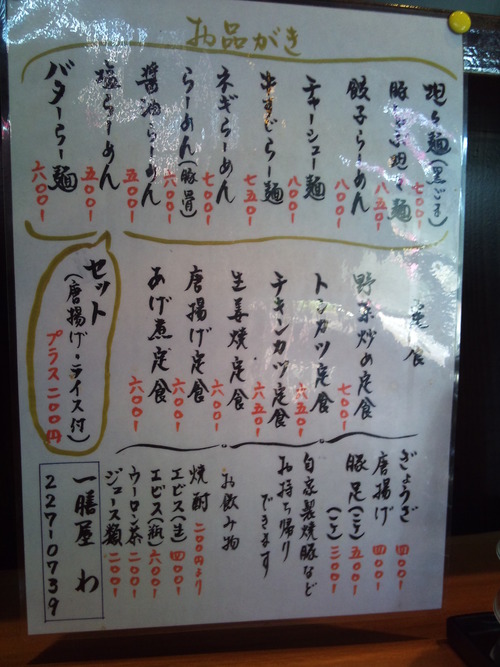 お品がき
坦々麺(黒ごま)
七〇〇-
八五〇-
餃子らーめん
八〇〇-
チャーシュー麺
八〇〇-
牛すじらー麺
七五〇-
ネギらーめん
七〇〇-
らーめん(豚骨)
六〇〇-
醤油らーめん
五〇〇-
塩らーめん
五〇〇-
バターらー麺
六〇〇-
定食
野菜炒め定食
七〇〇-
トンカツ定食
六五〇-
チキンカツ定食
六五〇-
生姜焼定食
六〇〇-
唐揚げ定食
六〇〇-
あげ煮定食
六〇〇-
セット
(唐揚げ・ライス付)
プラス二〇〇円
ぎょうざ
四〇〇-
唐揚げ
四〇〇-
豚足(二ヶ)
五〇〇-
(一ヶ)
三〇〇-
自家製焼豚など
お持ち帰り
できます
お飲み物
焼酎
二〇〇円より
エビス(生)
四〇〇-
エビス(瓶)
六〇〇-
ウーロン茶
二〇〇-
ジュース類
二〇〇-
一膳屋 わ
227-0739